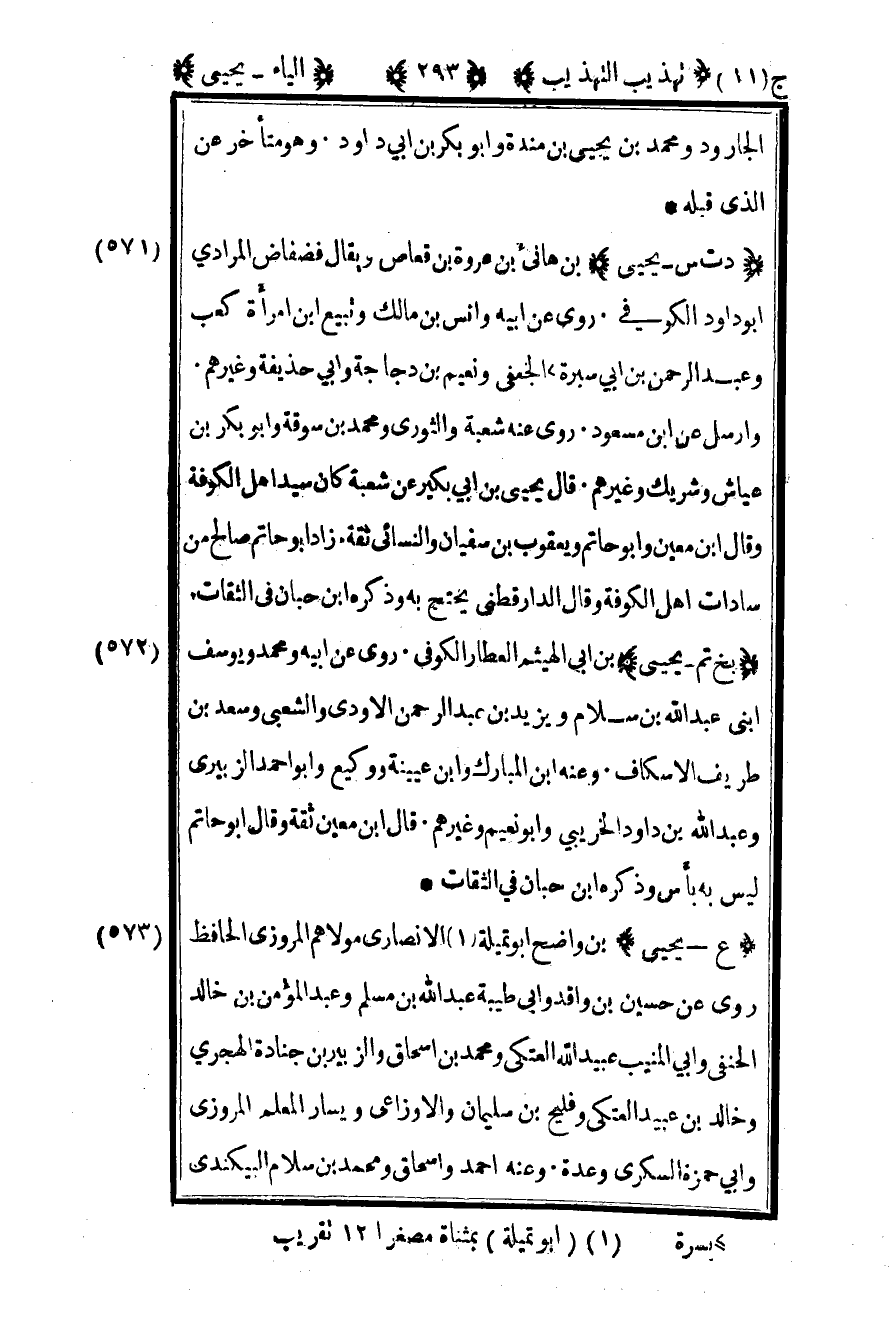 ج(١١) ﴿ تهذيب التهذيب ﴾ ﴿ ٢٩٣ ﴾ ﴿ الياء ـ يحيى ﴾
الجارود ومحمد بن يحيى بن مندة وابو بكر بن ابي داود ٠ وهو متأخر عن
الذى قبله *
﴿ دت س ـ يحيى ﴾ بن هانئ بن عروة بن قعاص ويقال فضفاض المرادي (٥٧١)
ابوداود الكوفي ٠ روى عن ابيه وانس بن مالك وتبيع ابن امرأة كعب
وعبد الرحمن بن ابي سبرة > الجعفى ونعيم بن دجاجة وابي حذيفة وغيرهم ٠
وارسل عن ابن مسعود ٠ روى عنه شعبة والثورى ومحمد بن سوقة وابو بكر بن
عياش وشريك وغيرهم ٠ قال يحيى بن ابي بكير عن شعبة كان سيد اهل الكوفة
وقال ابن معين وابو حاتم ويعقوب بن سفيان والنسائى ثقة ٠ زاد ابو حاتم صالح من
سادات اهل الكوفة وقال الدارقطنى يحتج به وذكره ابن حبان فى الثقات ٠
﴿ بخ تم ـ يحيى ﴾ بن ابي الهيثم العطار الكوفى ٠ روى عن ابيه ومحمد ويوسف (٥٧٢)
ابنى عبد الله بن سلام ويزيد بن عبد الرحمن الاودى والشعبى وسعد بن
طريف الاسكاف ٠ وعنه ابن المبارك وابن عيينة ووكيع وابو احمد الزبيرى
وعبد الله بن داود الخريبي وابو نعيم وغيرهم ٠ قال ابن معين ثقة وقال ابو حاتم
ليس به بأس وذكره ابن حبان في الثقات *
﴿ ع ـ يحيى ﴾ بن واضح ابو تميلة (١) الانصارى مولاهم المروزى الحافظ (٥٧٣)
روى عن حسين بن واقد وابي طيبة عبد الله بن مسلم وعبد المؤمن بن خالد
الحنفى وابي المنيب عبيد الله العتكى ومحمد بن اسحاق والزبير بن جنادة الهجري
وخالد بن عبيد العتكى وفليح بن سليمان والاوزاعى ويسار المعلم المروزى
وابي حمزة السكرى وعدة ٠ وعنه احمد واسحاق ومحمد بن سلام البيكندى
> بسرة (١) ( ابو تميلة ) بمثناة مصغرا ١٢ تقريب